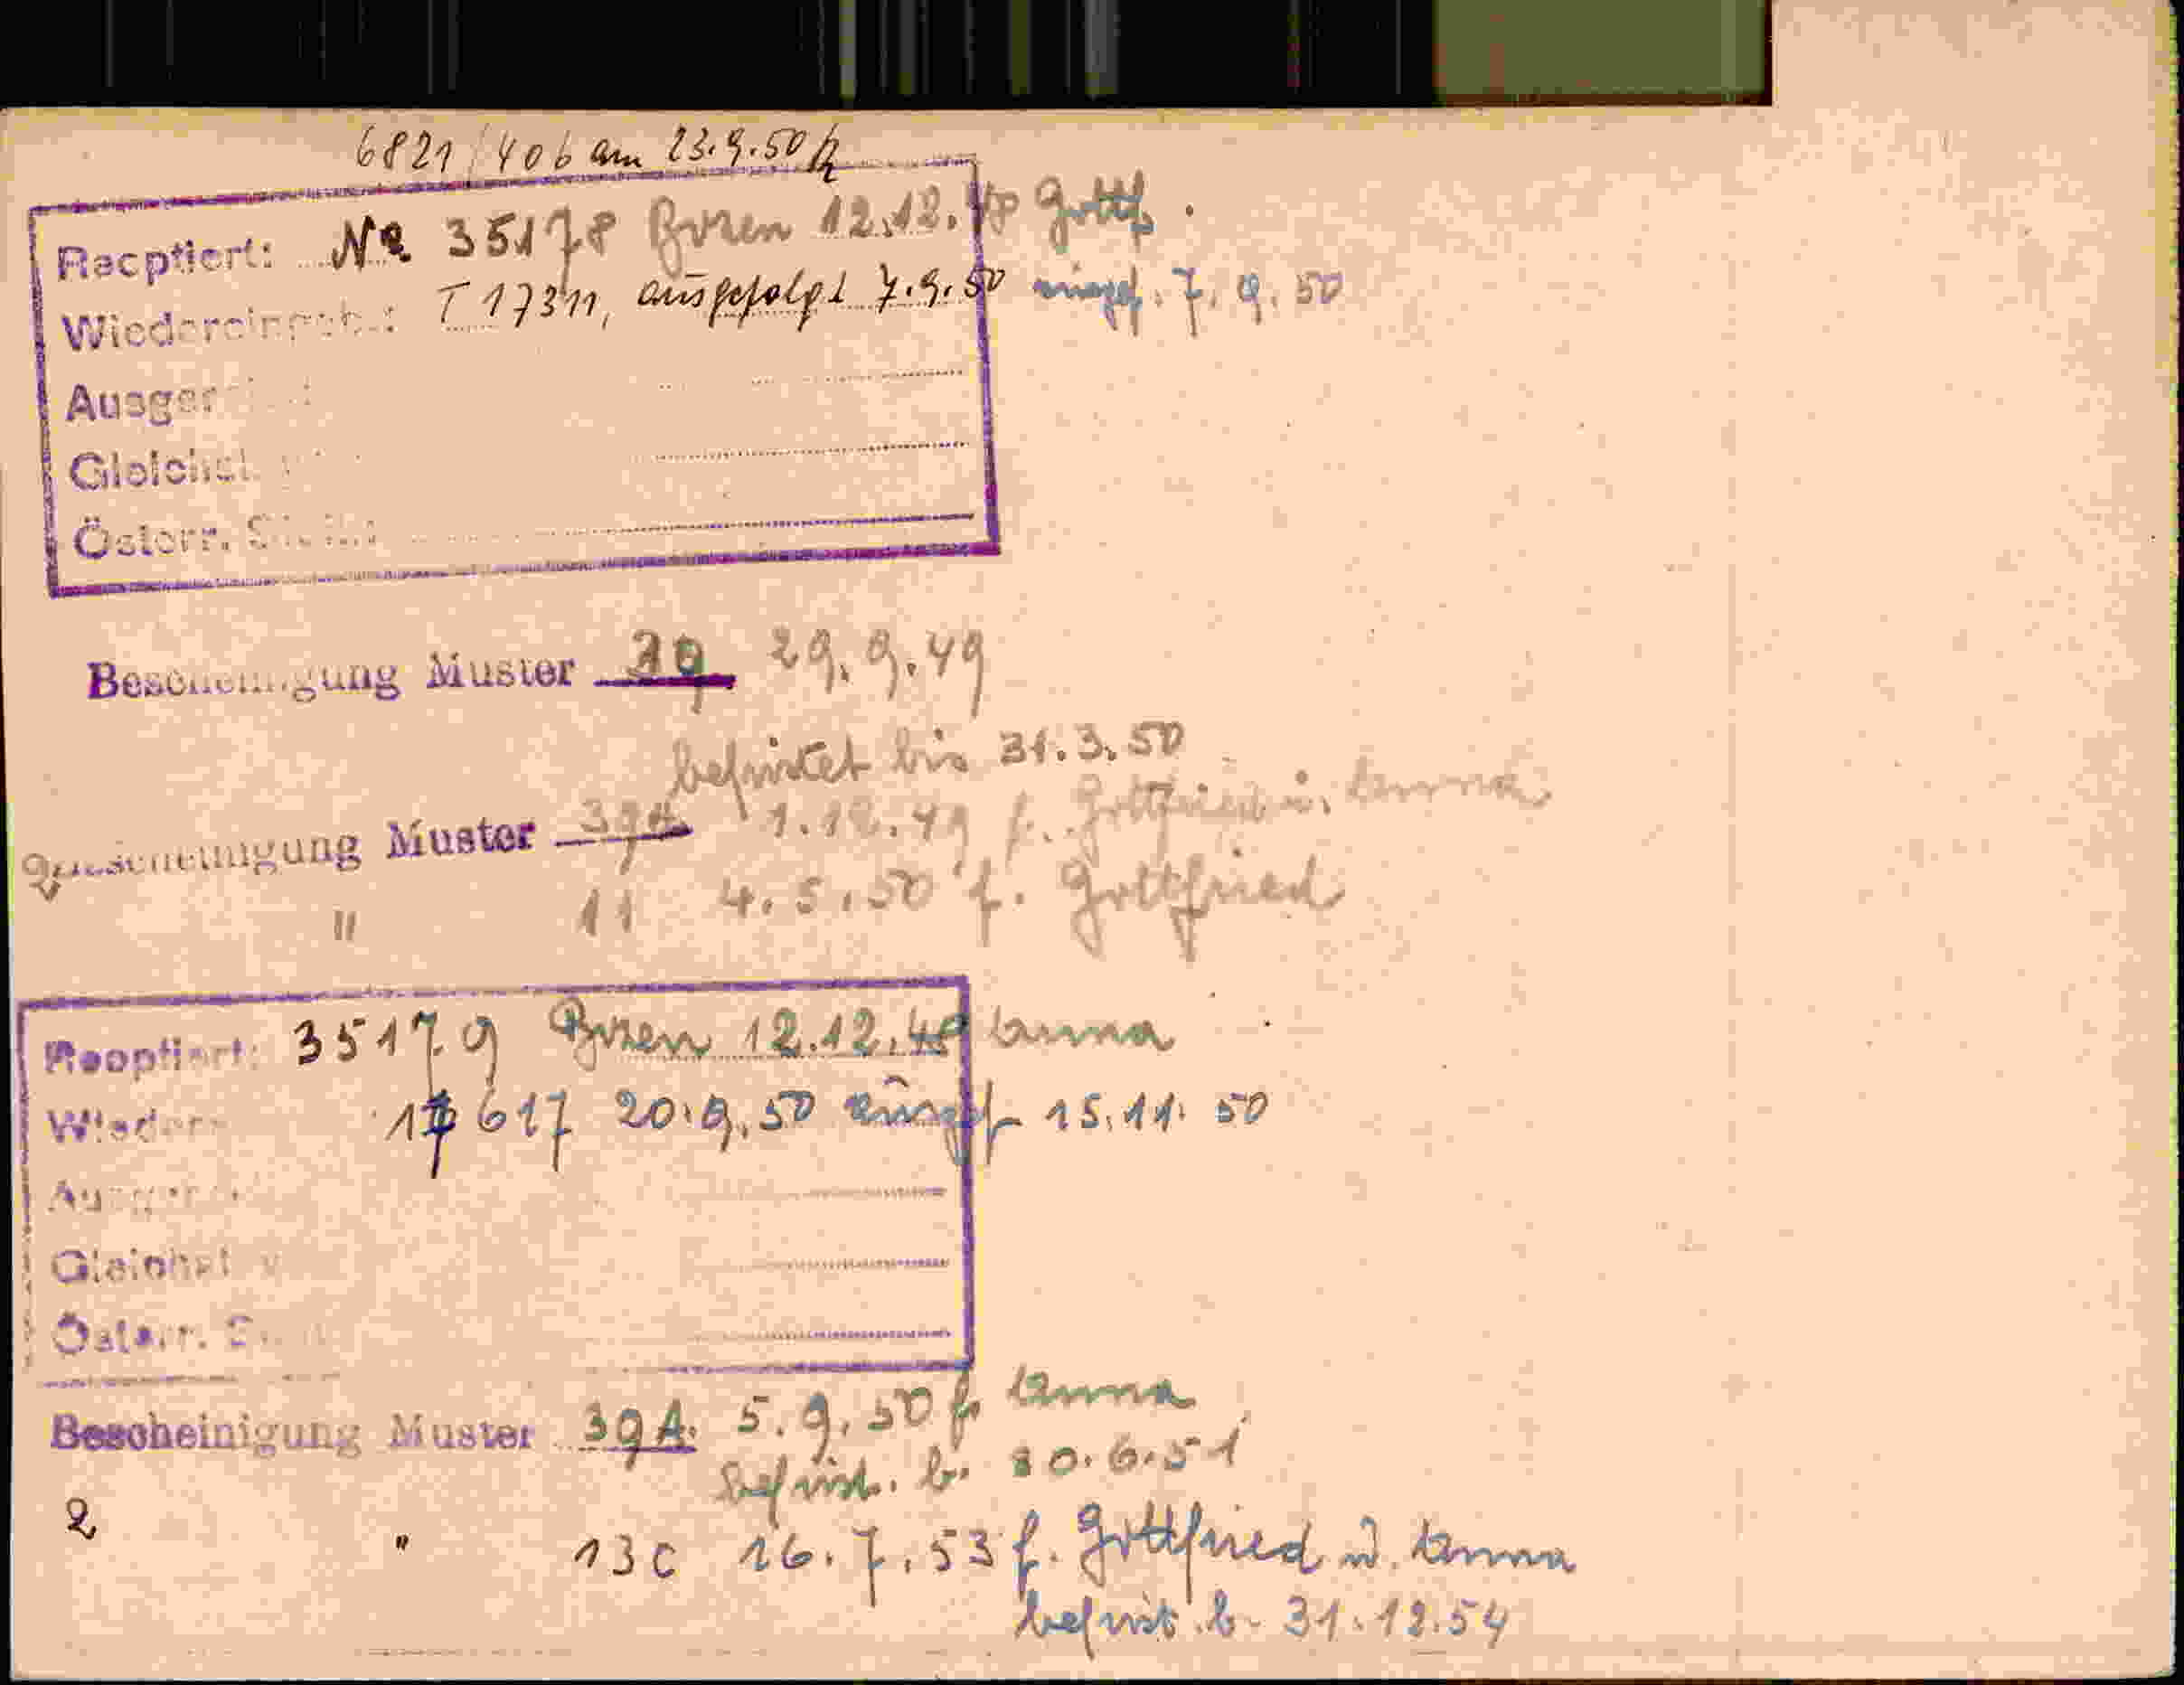 6821/406 am 23.9.50
Reoptiert: No 35178 Bozen 12.12.48 Gottf.
Wiedereingeb.: T 17311, ausgefolgt 7.9.50 ausgef. 7.9.50
Ausger
Gleichst.
Österr.
Bescheinigung Muster 39 29.9.49
befristet bis 31.3.50
2 Bescheinigung Muster 39A 1.12.49 f. Gottfried u. Anna
" 11 4.5.50 f. Gottfried
Reoptiert: 35179 Bozen 12.12.48 Anna
Wieder 17617 20.9.50 ausgef 15.11.50
Ausger
Gleichst v
Österr.
Bescheinigung Muster 39A. 5.9.50 f. Anna
befrist. b. 30.6.51
2 " 13c 16.7.53 f. Gottfried u. Anna
befrist. b. 31.12.54